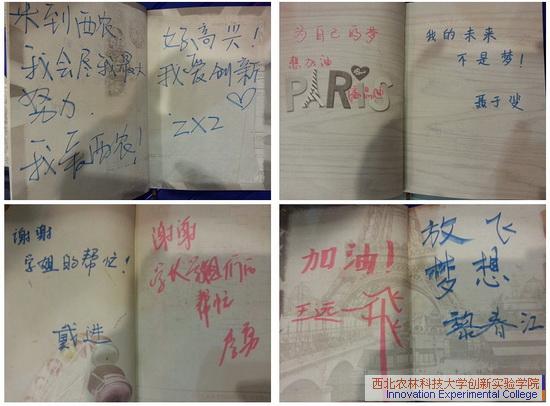 来到西农
我会尽我最大
努力.
我爱西农!
好高兴!
我爱创新
ZXZ
为自己的梦
想加油
PARIS
我的未来
不是梦!
谢谢
学姐的帮忙!
谢谢
学长学姐们的
帮忙
加油!
放飞
梦想
黎春江
西北农林科技大学创新实验学院
Innovation Experimental College